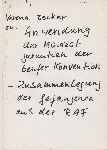 zu:
Anwendung
der Mindest-
garantien der
Genfer Konvention
- Zusammenlegung
der Gefangenen
aus der RAF